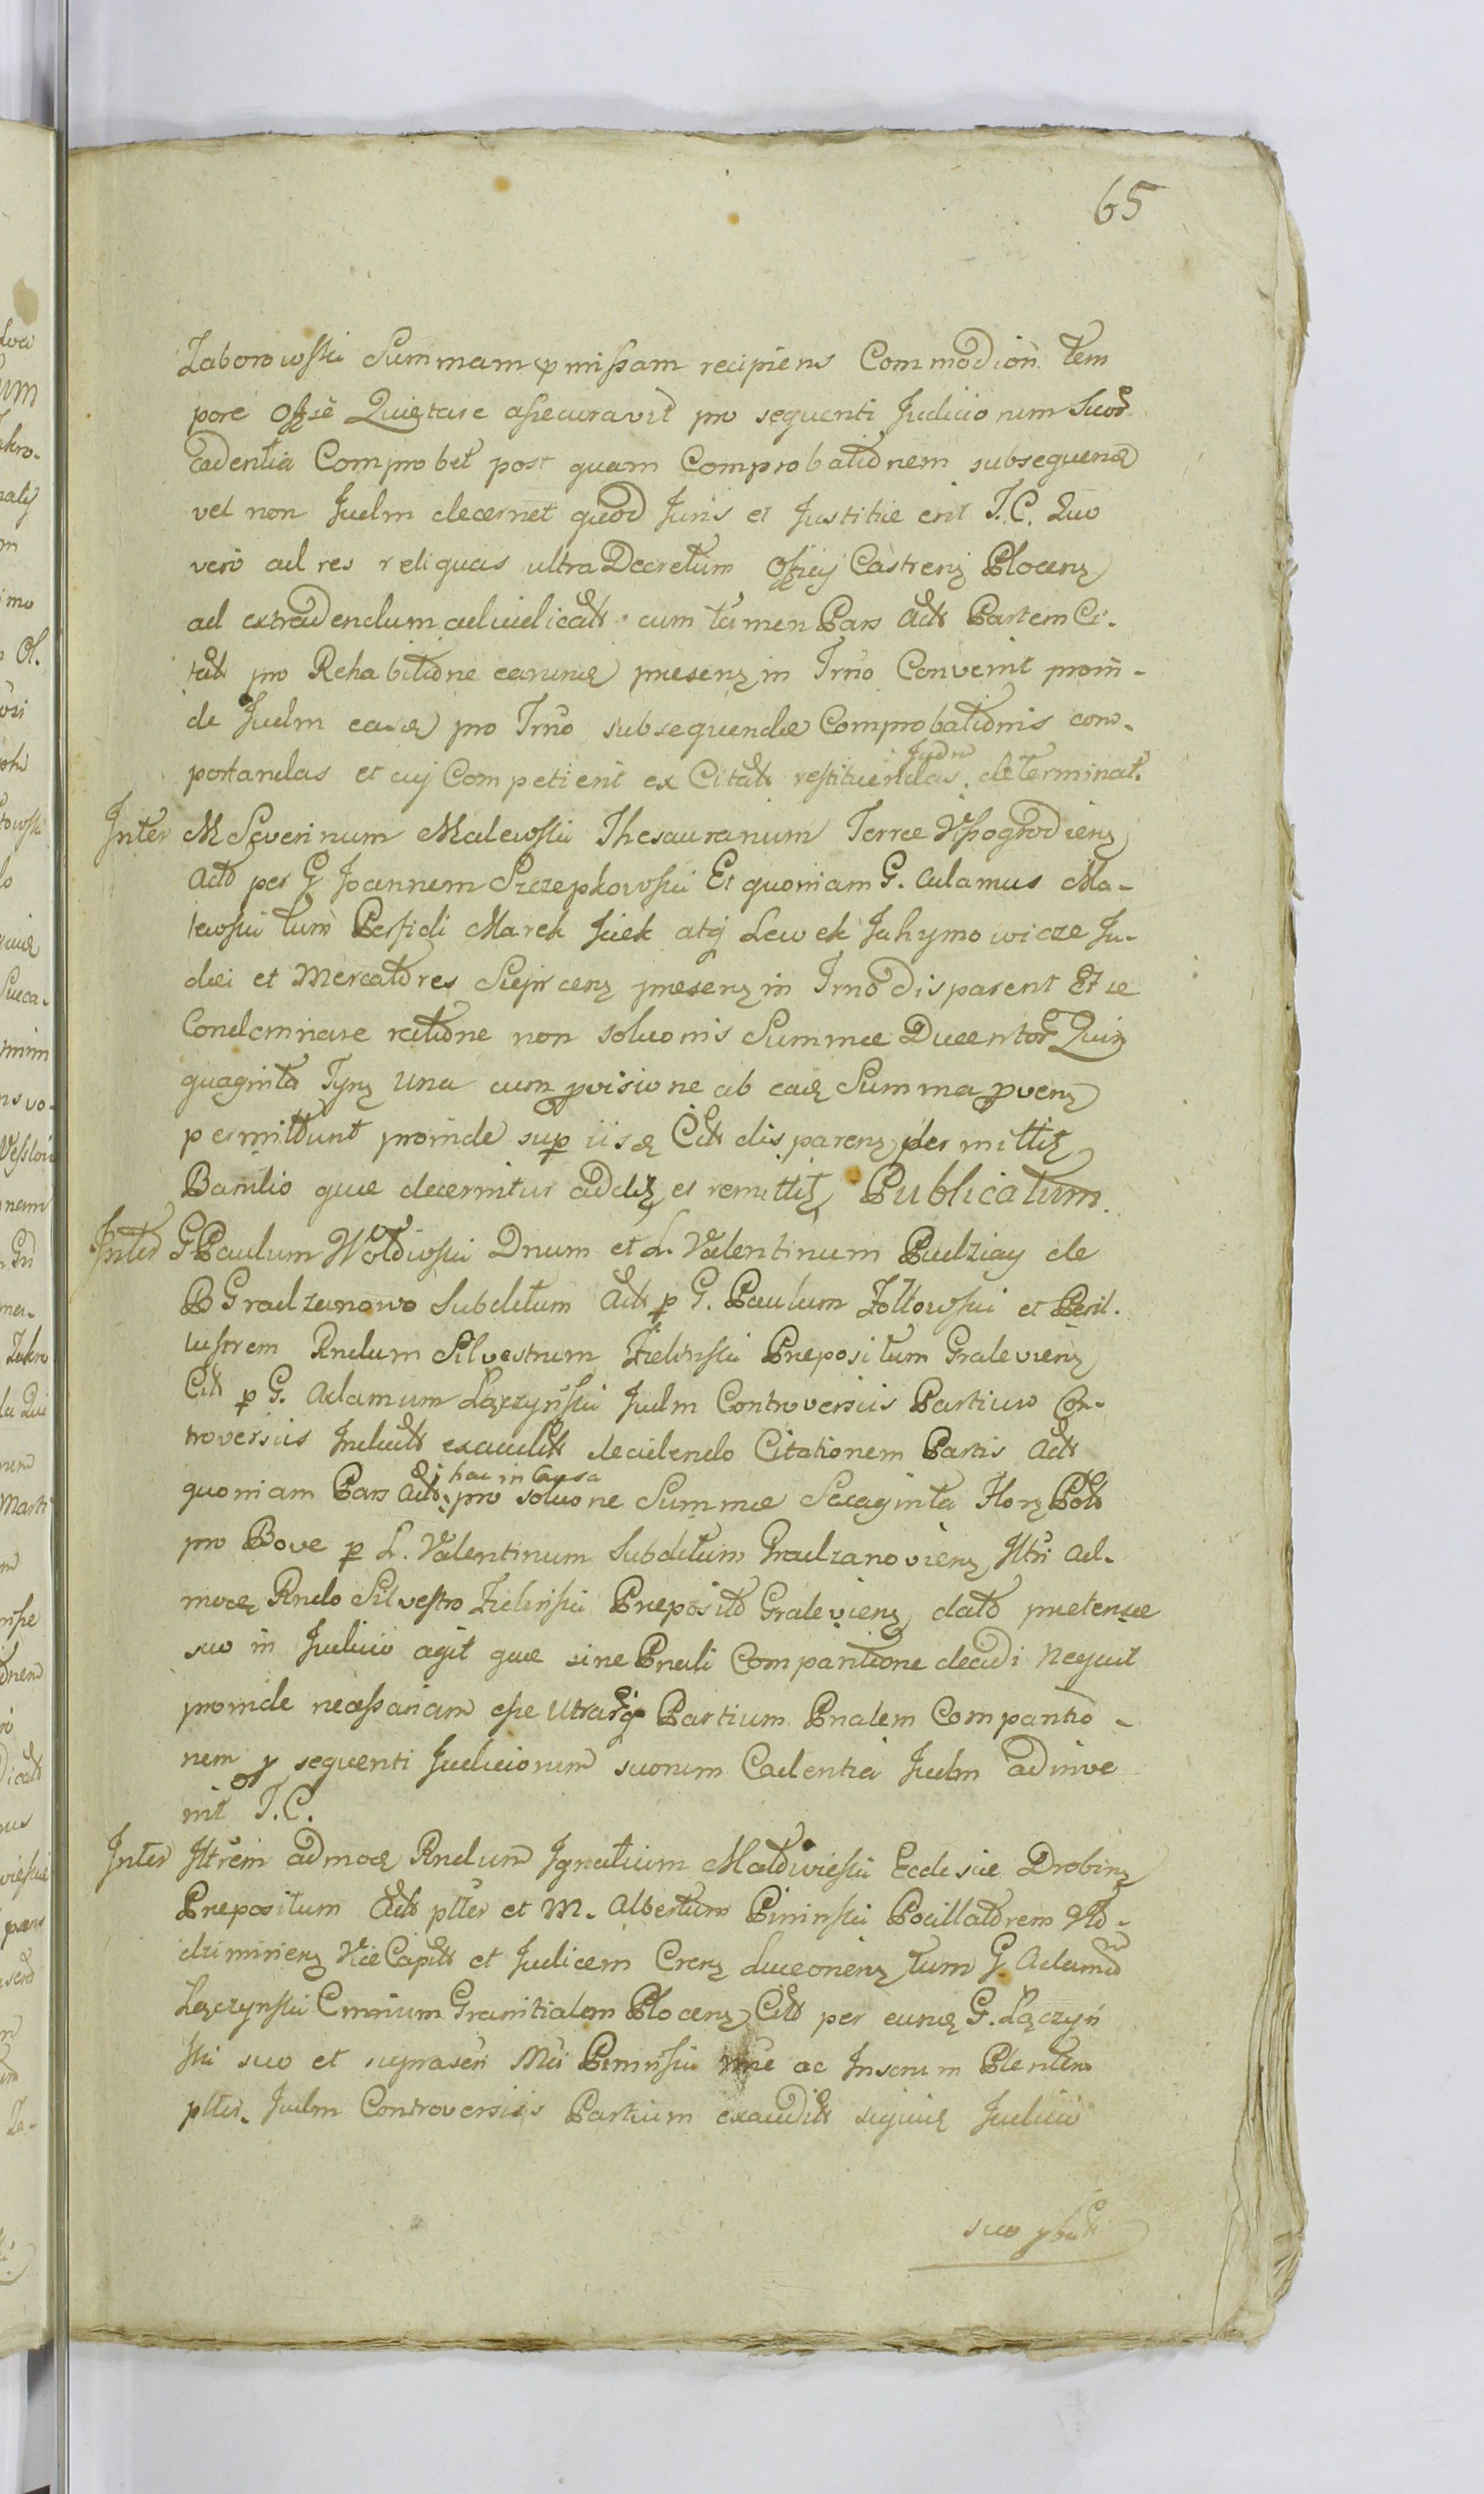 65
Zaborowski Summam pmissam recipiens Commodiori tem
pore Offse Quietare assecuravit pro sequenti Judicionem Suor
cadentia Comprobet post quam Comprobationem subsequend
vel non Judm decernet quod Juris et Justitiæ erit T.C. Quo
vero ad res reliquas ultra Decretum Officij Castrens Plocens
ad extradendum adiudicat cum tamen Pars Act Partem Ci-
tat pro Rehabitione earund presens in Trno Convenit proin-
de Judm eas pro Trno subsequendæ Comprobationis com-
portandas et cuj Competierit ex Citat restituendas Judm determinat.
Inter M Severinum Malewski Thesaurarium Terræ Wyssogrodiens
Act per G Joannem Szczepkowski Et quoniam G. Adamus Ma-
lewski tum Perfidi Marek Jcek atq Lewek Jahymowicze Ju-
dæi et Mercatores Sieprcens presens in Trno disparent Et se
Condemnare ratione non solvonis Summæ Ducentor Quin
quaginta Tynf una cum pvisione ab ead Summa pvens
permittunt proinde sup iisd Cit disparens permittit
Bannitio quæ decernitur addit et remittit Publicatum.
Inter G Paulum Woldowski Dnum et L. Valentinum Pudziay de
B Gradzanowo Subditum Act p G. Paulum Zoltowski et Peril-
lustrem Rndum Silvestrum Zielinski Prepositum Graleviens
Cit p G. Adamum Łączyński Judm Controversiis Partium Con-
troversiis Induct exaudit decidendo Citationem Partis Act
quoniam Pars Act hac in Causa pro solvone Summæ Sexaginta Flor Pol
pro Bove p L. Valentinum Subditum Gradzanoviens Illri ad-
mod Rndo Silvestro Zielinski Preposito Graleviens dato pretensæ
suo in Judicio agit quæ sine Pnali Comparitione decidi nequit
proinde necessariam esse utrarq Partium Pnalem Comparitio-
nem p sequenti Judiciorum suorum Cadentia Judm adinve
nit T.C.
Inter Illrem admod Rndum Ignatium Maldwieski Ecclesiæ Drobins
Prepositum Act ptter et M. Albertum Pininski Pocillatorem Wło-
dzimiriens Vice Capit et Judicem Crens Luceoriens tum G. Adamum
Łączynski Cmrium Granitialem Plocens Cit per eund G. Łączyń
ski suo et suprascri Mci Pininski nne ac Inscrum Plenten
ptter. Judm Controversiis Partium exaudit siquid Judicio
suo